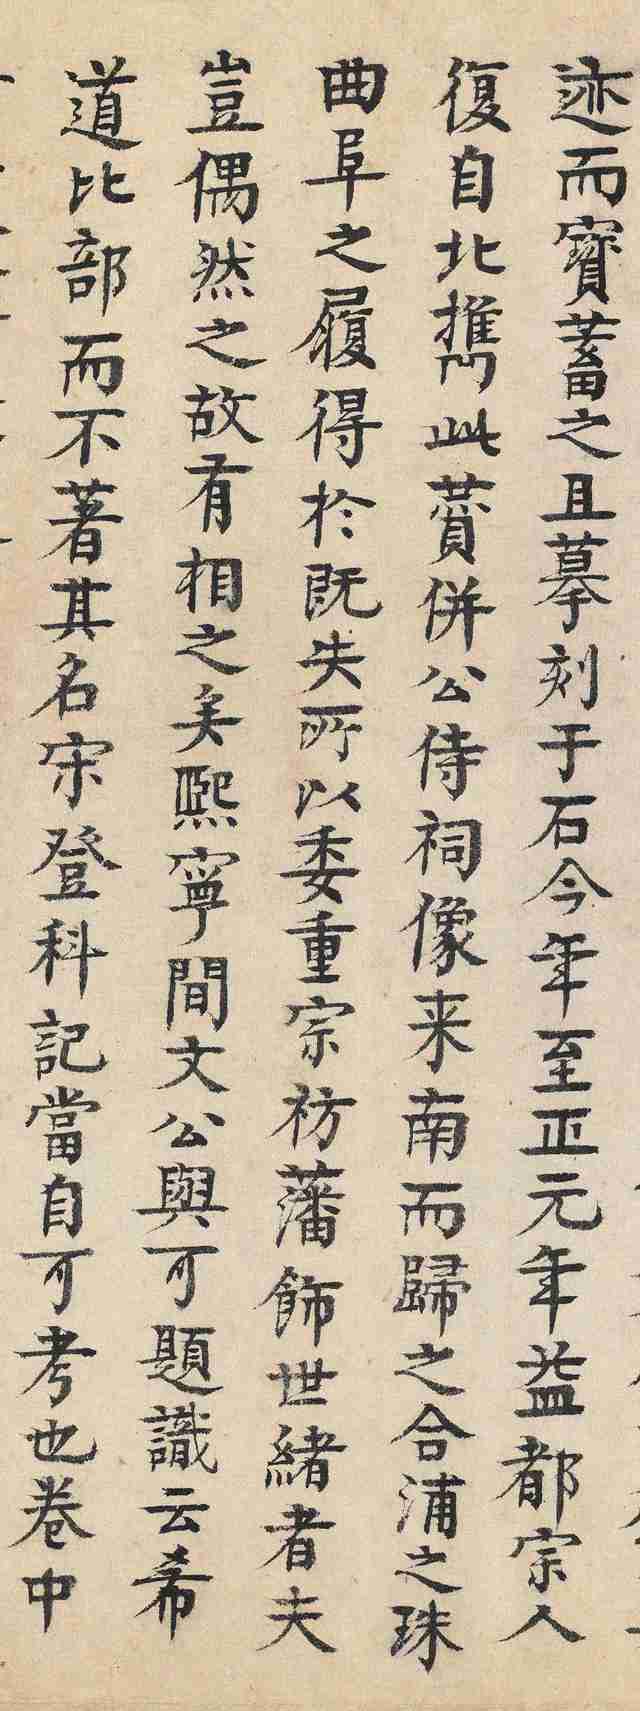 迹而寶蓄之且摹刻于石今年至正元年益都宗人
復自北擕此賛併公侍祠像来南而歸之合浦之珠
曲阜之履得於既失所以委重宗祊藩飾世緒者夫
豈偶然之故有相之矣熙寧間文公與可題識云希
道比部而不著其名宋登科記當自可考也卷中